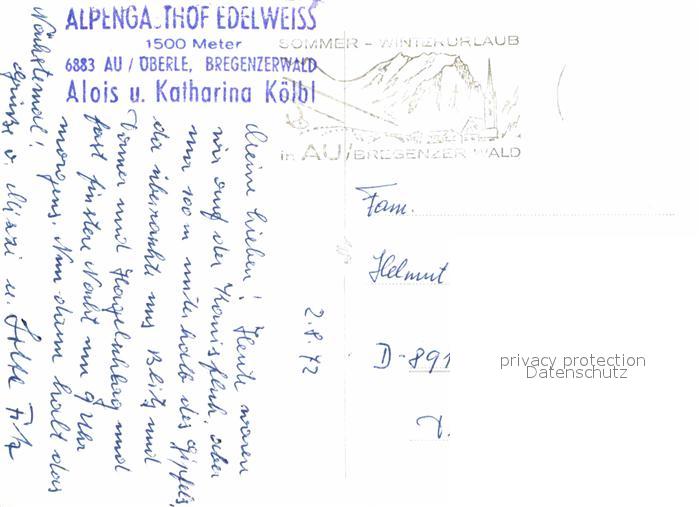 ALPENGA THOF EDELWEISS
1500 Meter
6883 AU / ÜBERLE, BREGENZERWALD
Alois u. Katharina Kölbl
SOMMER - WINTERURLAUB
in AU/BREGENZER WALD
2.8.72
Meine Lieben! Heute waren
wir auf der Kanisfluh, aber
nur 100 m unterhalb des Gipfels,
da überraschte uns Blitz und
Donner und Hagelschlag und
fast finstere Nacht um 9 Uhr
morgens. Nun dann halt das
Nächstemal!
Grüße v. Mizzi u.
Fam.
Helmut
D-891
privacy protection
Datenschutz